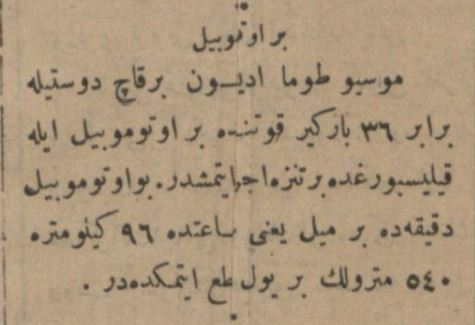 بر اوتوبیل
موسیو طوما ادیسون برقاچ دوستیله
برابر ٣٦ بارکیر قوتنده بر اوتوموبیل ایله
قیلیسبورغده برتنزه اجرا ایتمشدر. بو اوتوموبیل
دقیقه‌ده بر میل یعنی ساعتده ٩٦ کیلومتره
٥٤٠ مترولك بر یول طع ایتمکده‌در .